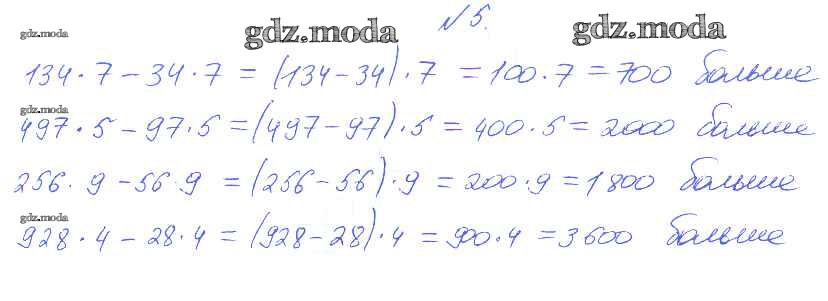 №5.
gdz.moda gdz.moda gdz.moda
134·7 − 34·7 = (134−34)·7 = 100·7 = 700 больше
gdz.moda
497·5 − 97·5 = (497−97)·5 = 400·5 = 2000 больше
256·9 − 56·9 = (256−56)·9 = 200·9 = 1800 больше
gdz.moda
928·4 − 28·4 = (928−28)·4 = 900·4 = 3600 больше